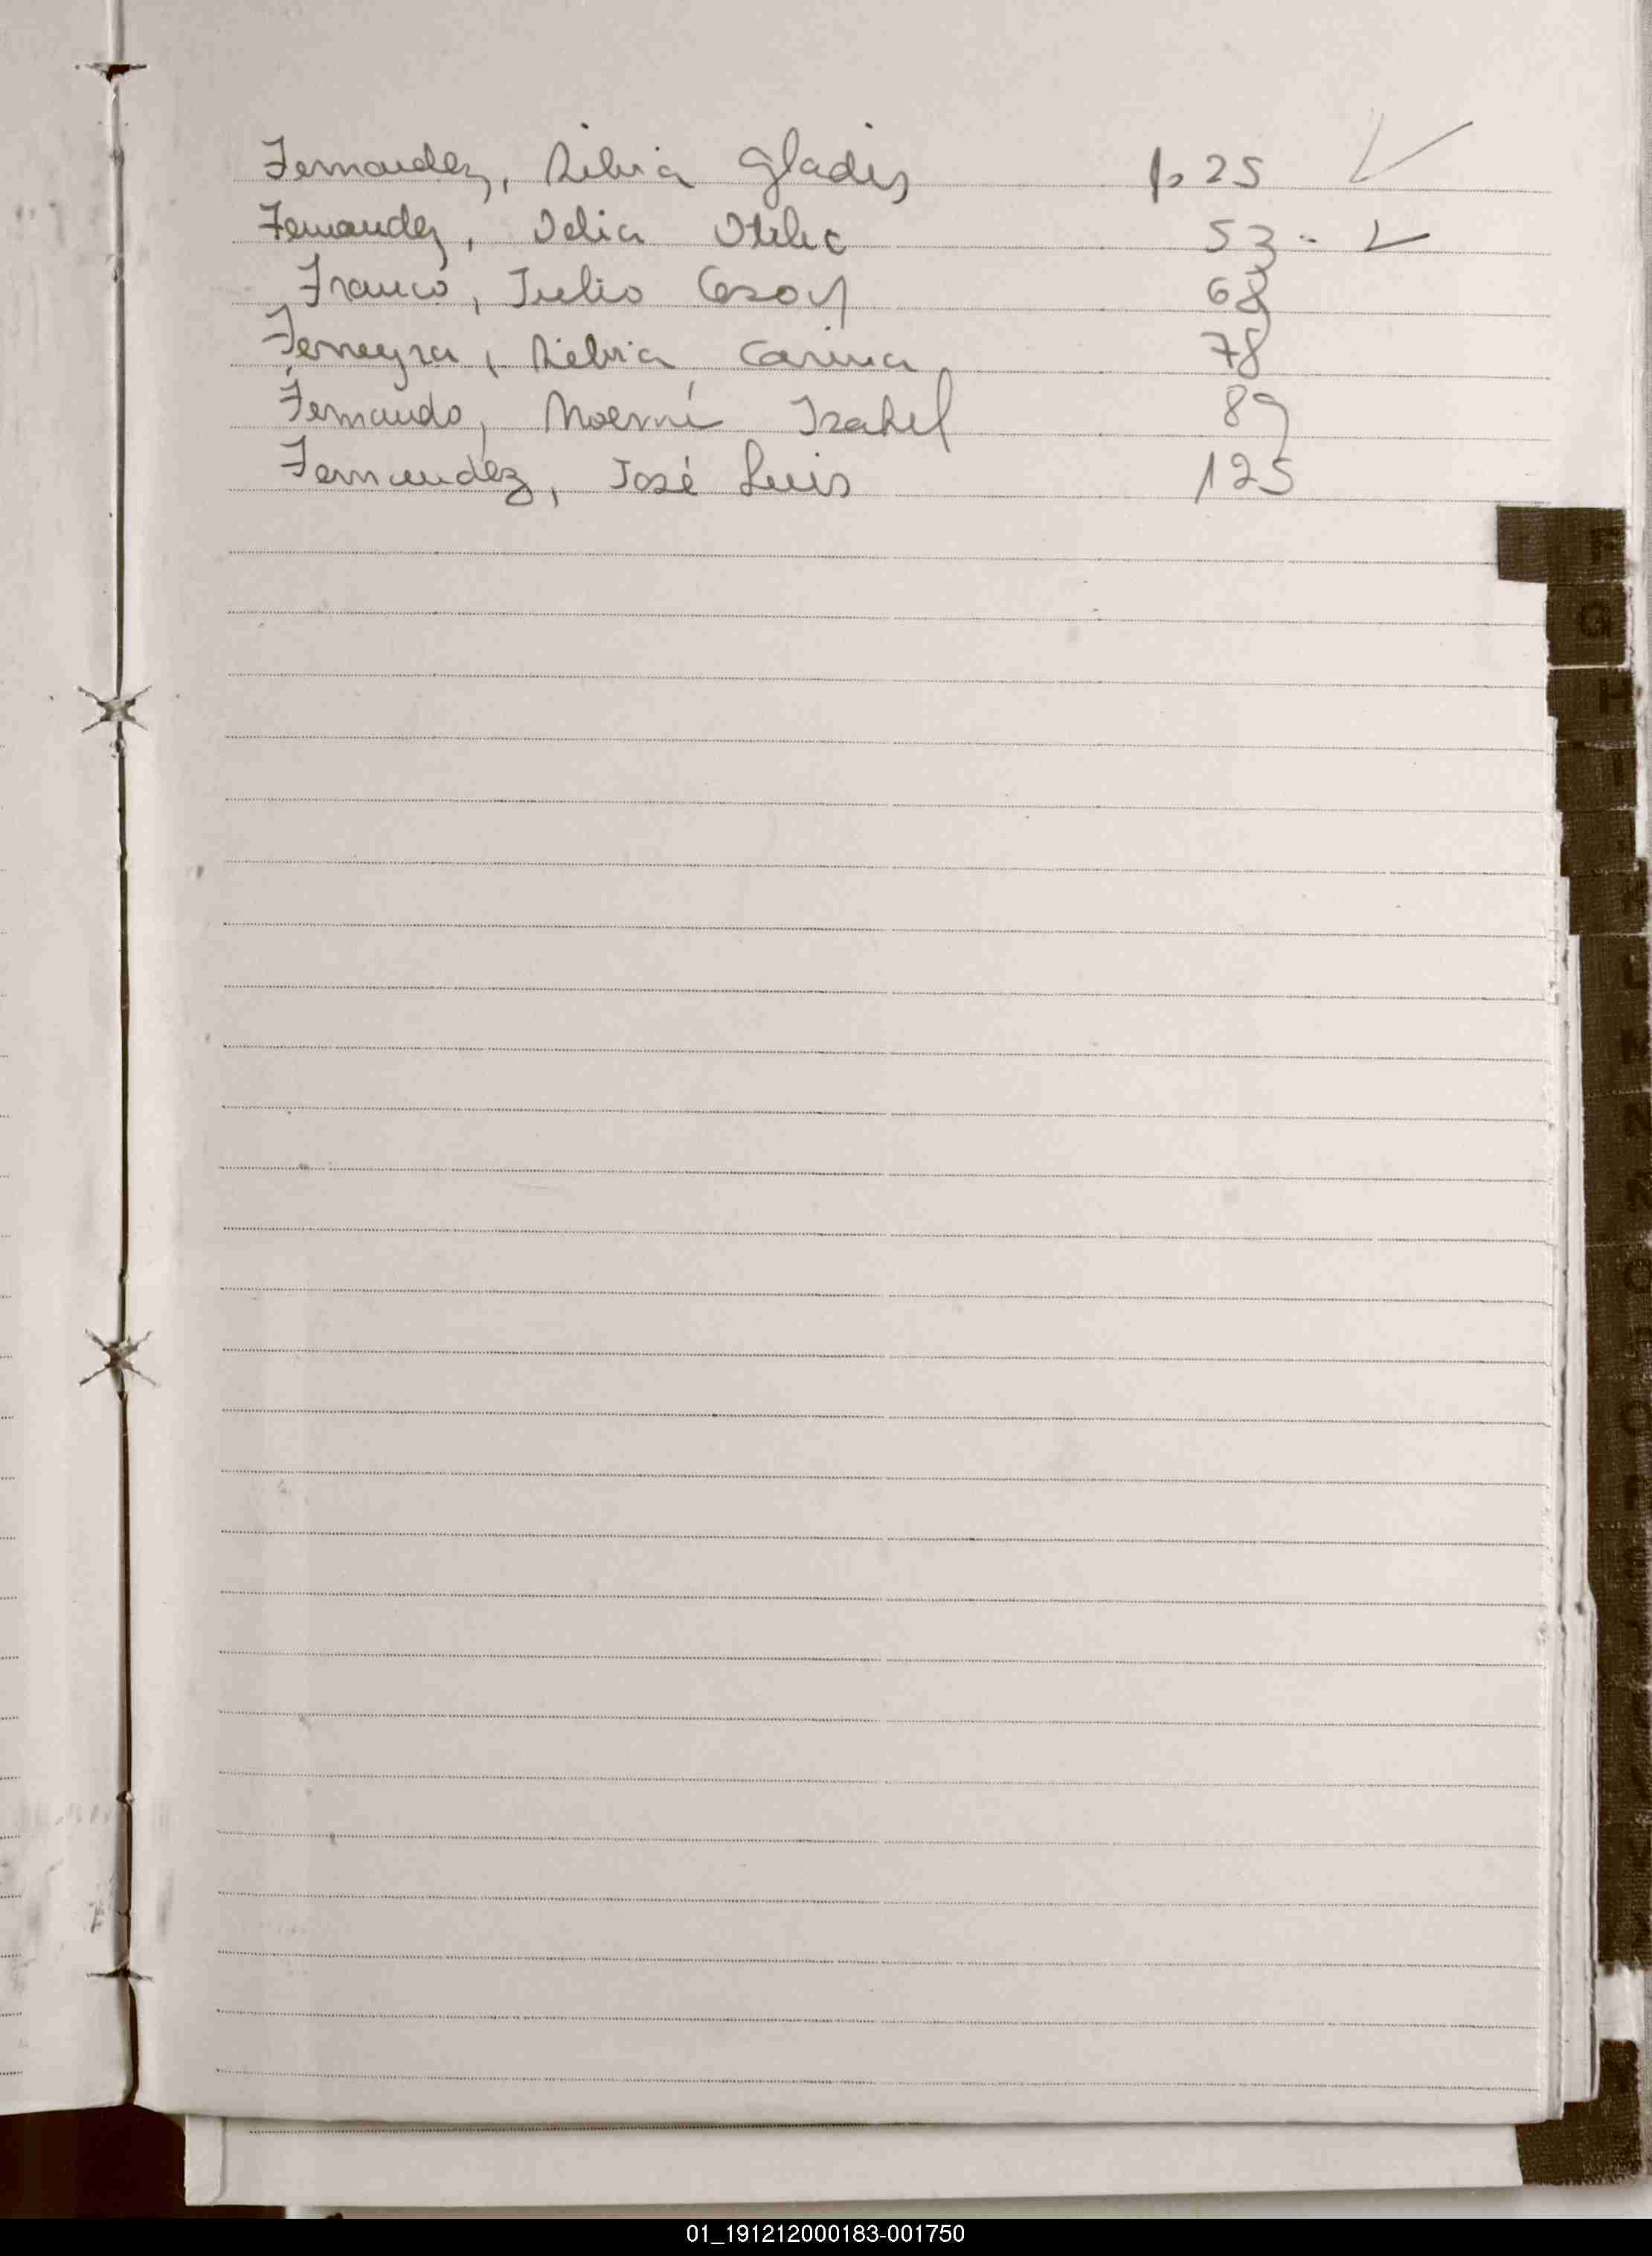 Fernandez, Silvia Gladis p. 25
Fernandez, Delia Otilia 53 -
Franco, Julio Cesar 68
Ferreyra, Silvia Carina 78
Fernando, Noemí Izabel 89
Fernandez, José Luis 125
F
G
H
I
01_191212000183-001750